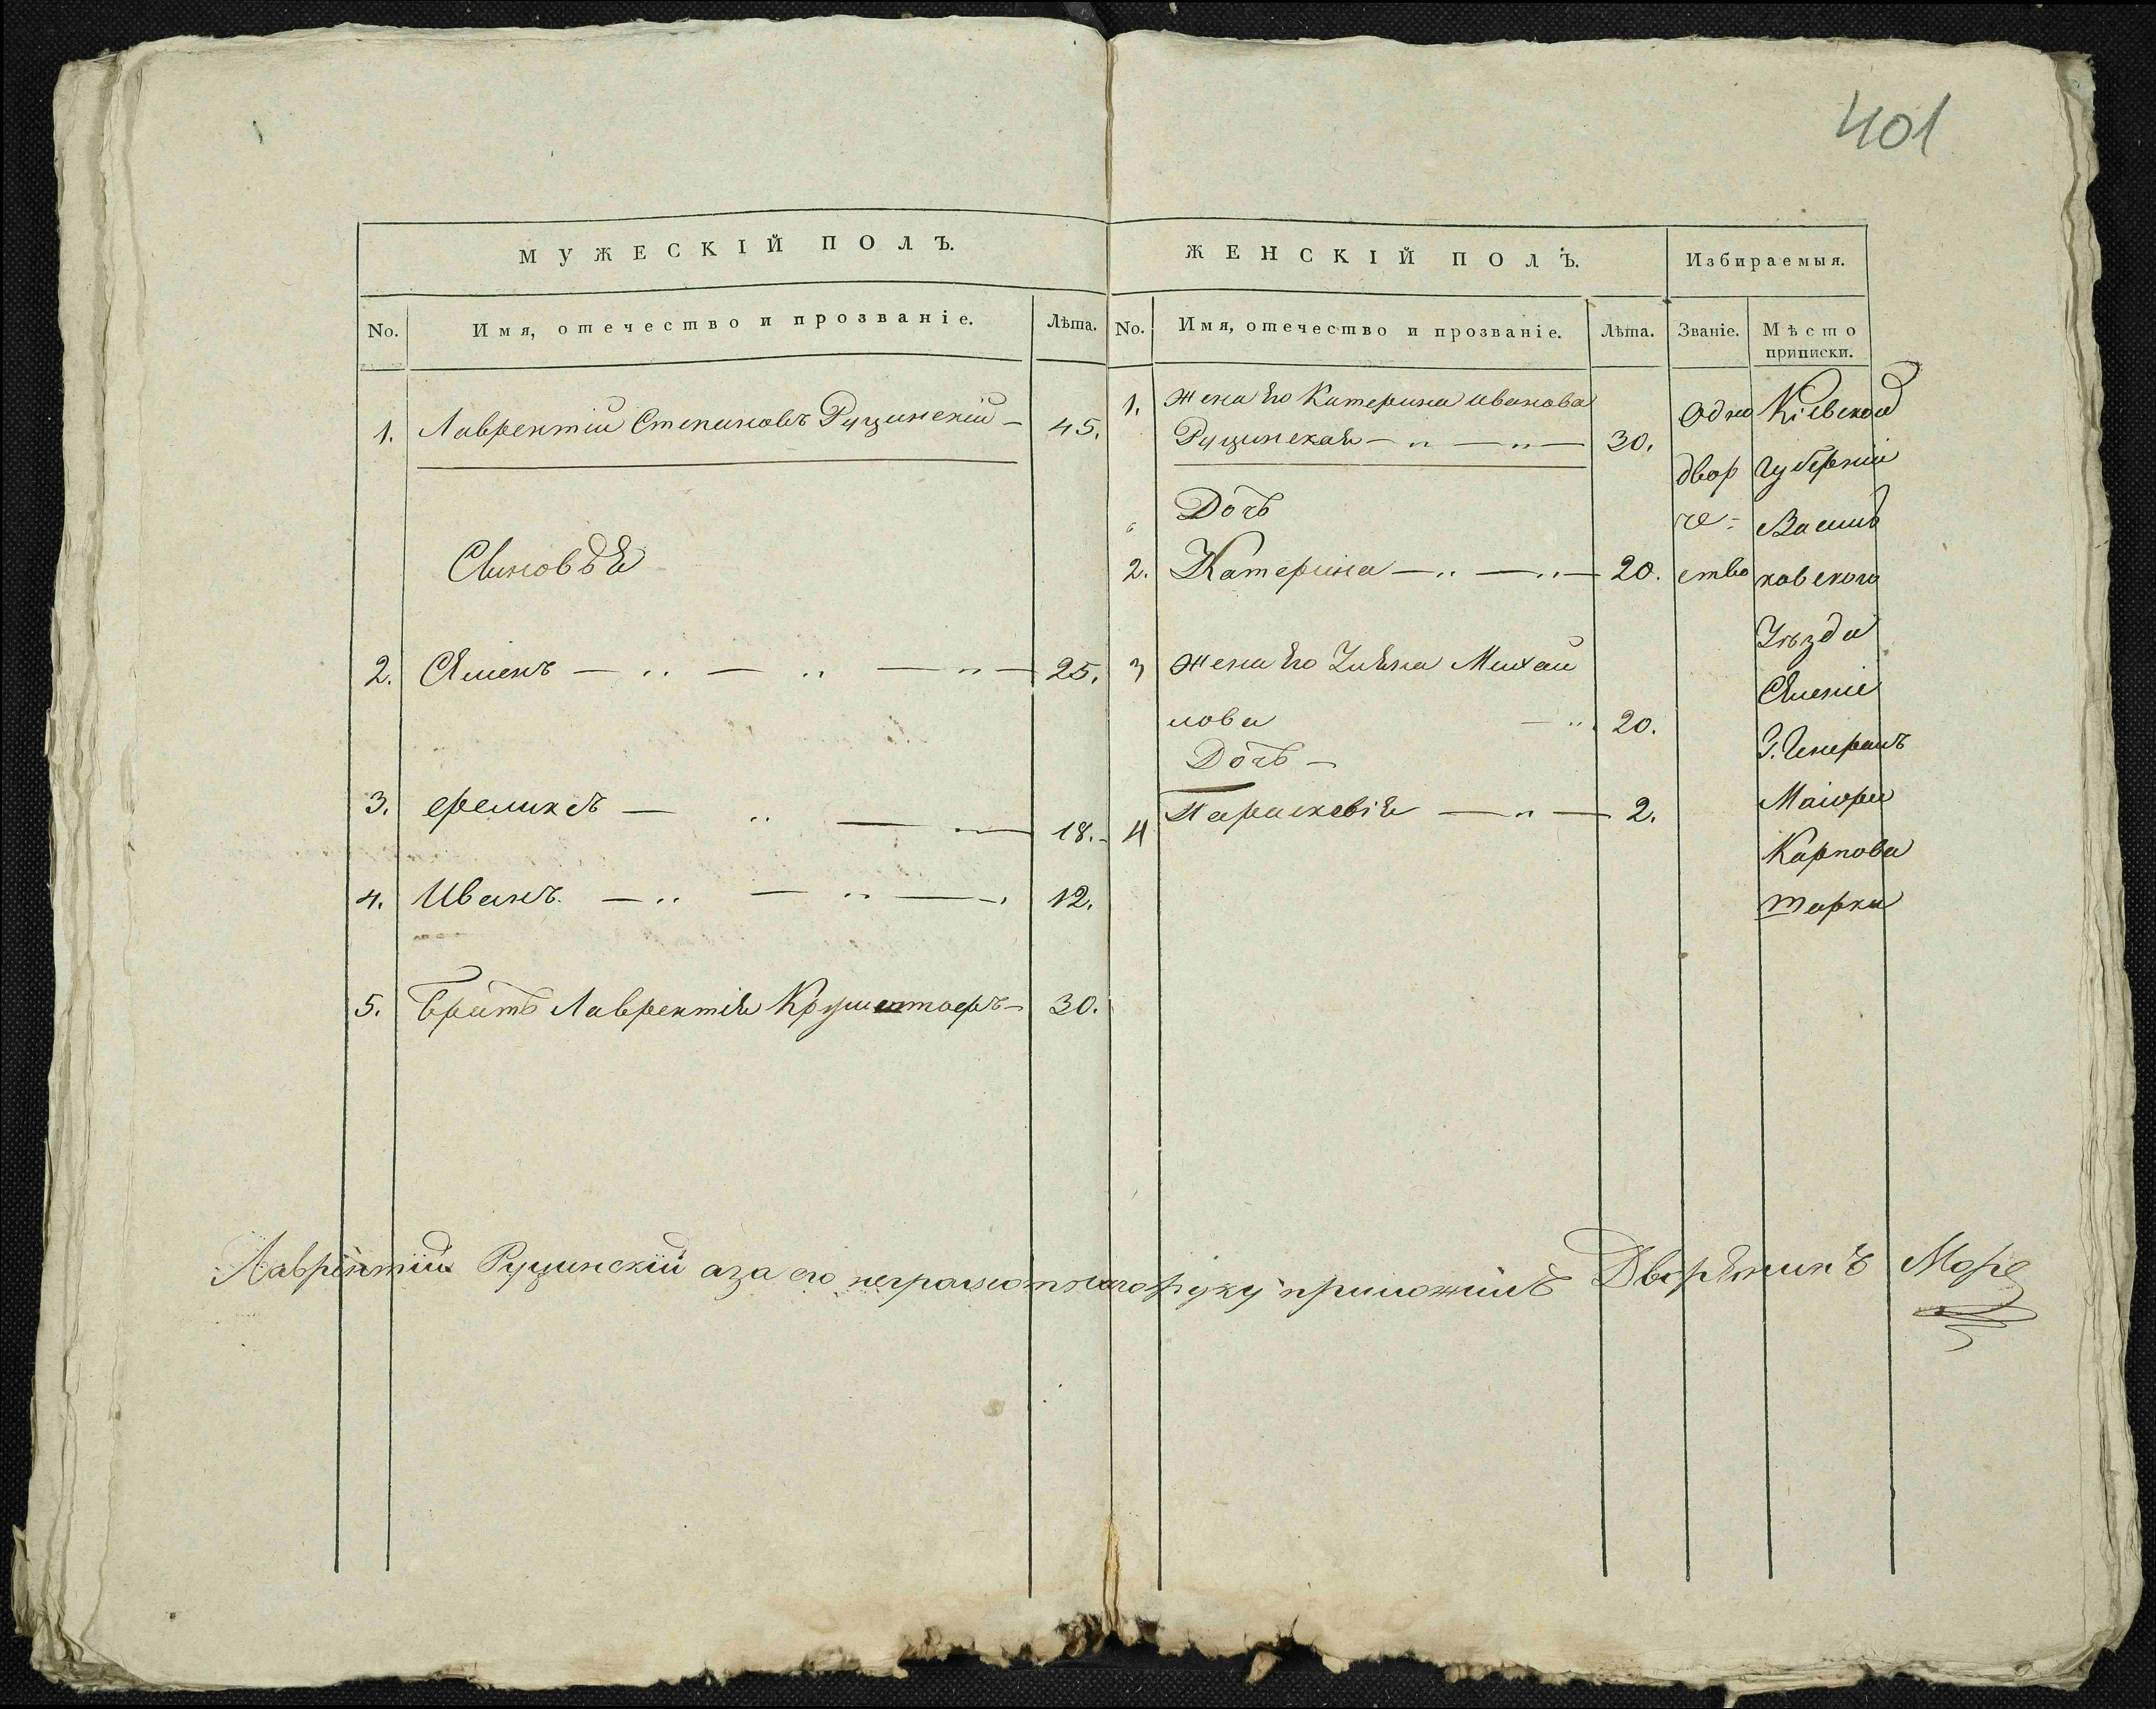 401
МУЖЕСКІЙ ПОЛЪ.
No. Имя, отечество и прозваніе. Лѣта.
1. Лаврентій Степановъ Рущинскій — 45.
Синовъя
2. Семенъ — „ — „ — „ — 25.
3. Феликсъ — „ — „ — 18.
4. Иванъ. — „ — „ — 12.
5. Братъ Лаврентія Криштофъ — 30.
ЖЕНСКІЙ ПОЛЪ.
No. Имя, отечество и прозваніе. Лѣта.
1. Жена Его Катерина Иванова
Рущинская — „ — „ — 30.
Дочь
2. Катерина — „ — „ — 20.
3 Жена Его Улена Михай
лова — „ 20.
Дочь —
4 Параскевія — „ — 2.
Избираемыя.
Званіе.
Одно
двор
че-
ство
Мѣсто
приписки.
Кіевской
Губерніи
Василь
ковского
Уѣзда
Г. Генералъ
Маіора
Карпова
Лаврентій Рущинскій аза его неграмотнаго руку приложилъ Дворянинъ